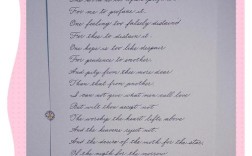 For me to profane it.
One feeling too falsely disdained
For thee to disdain it.
One hope is too like despair
For prudence to smother.
And pity from thee more dear
Than that from another.
I can not give what men call love
But wilt thou accept not
The worship the heart lifts above
And the heavens reject not.
And the desire of the moth for the star.
Of the night for the morrow